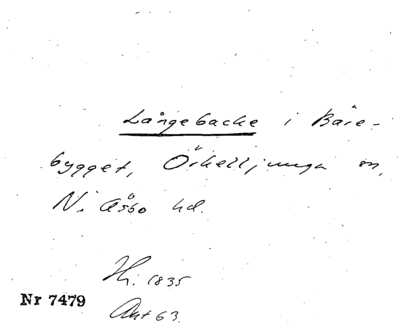 Långebacke i Båre-
bygget, Örkelljunga sn,
N. Åsbo hd.
Hi. 1835
Akt 63.
Nr 7479